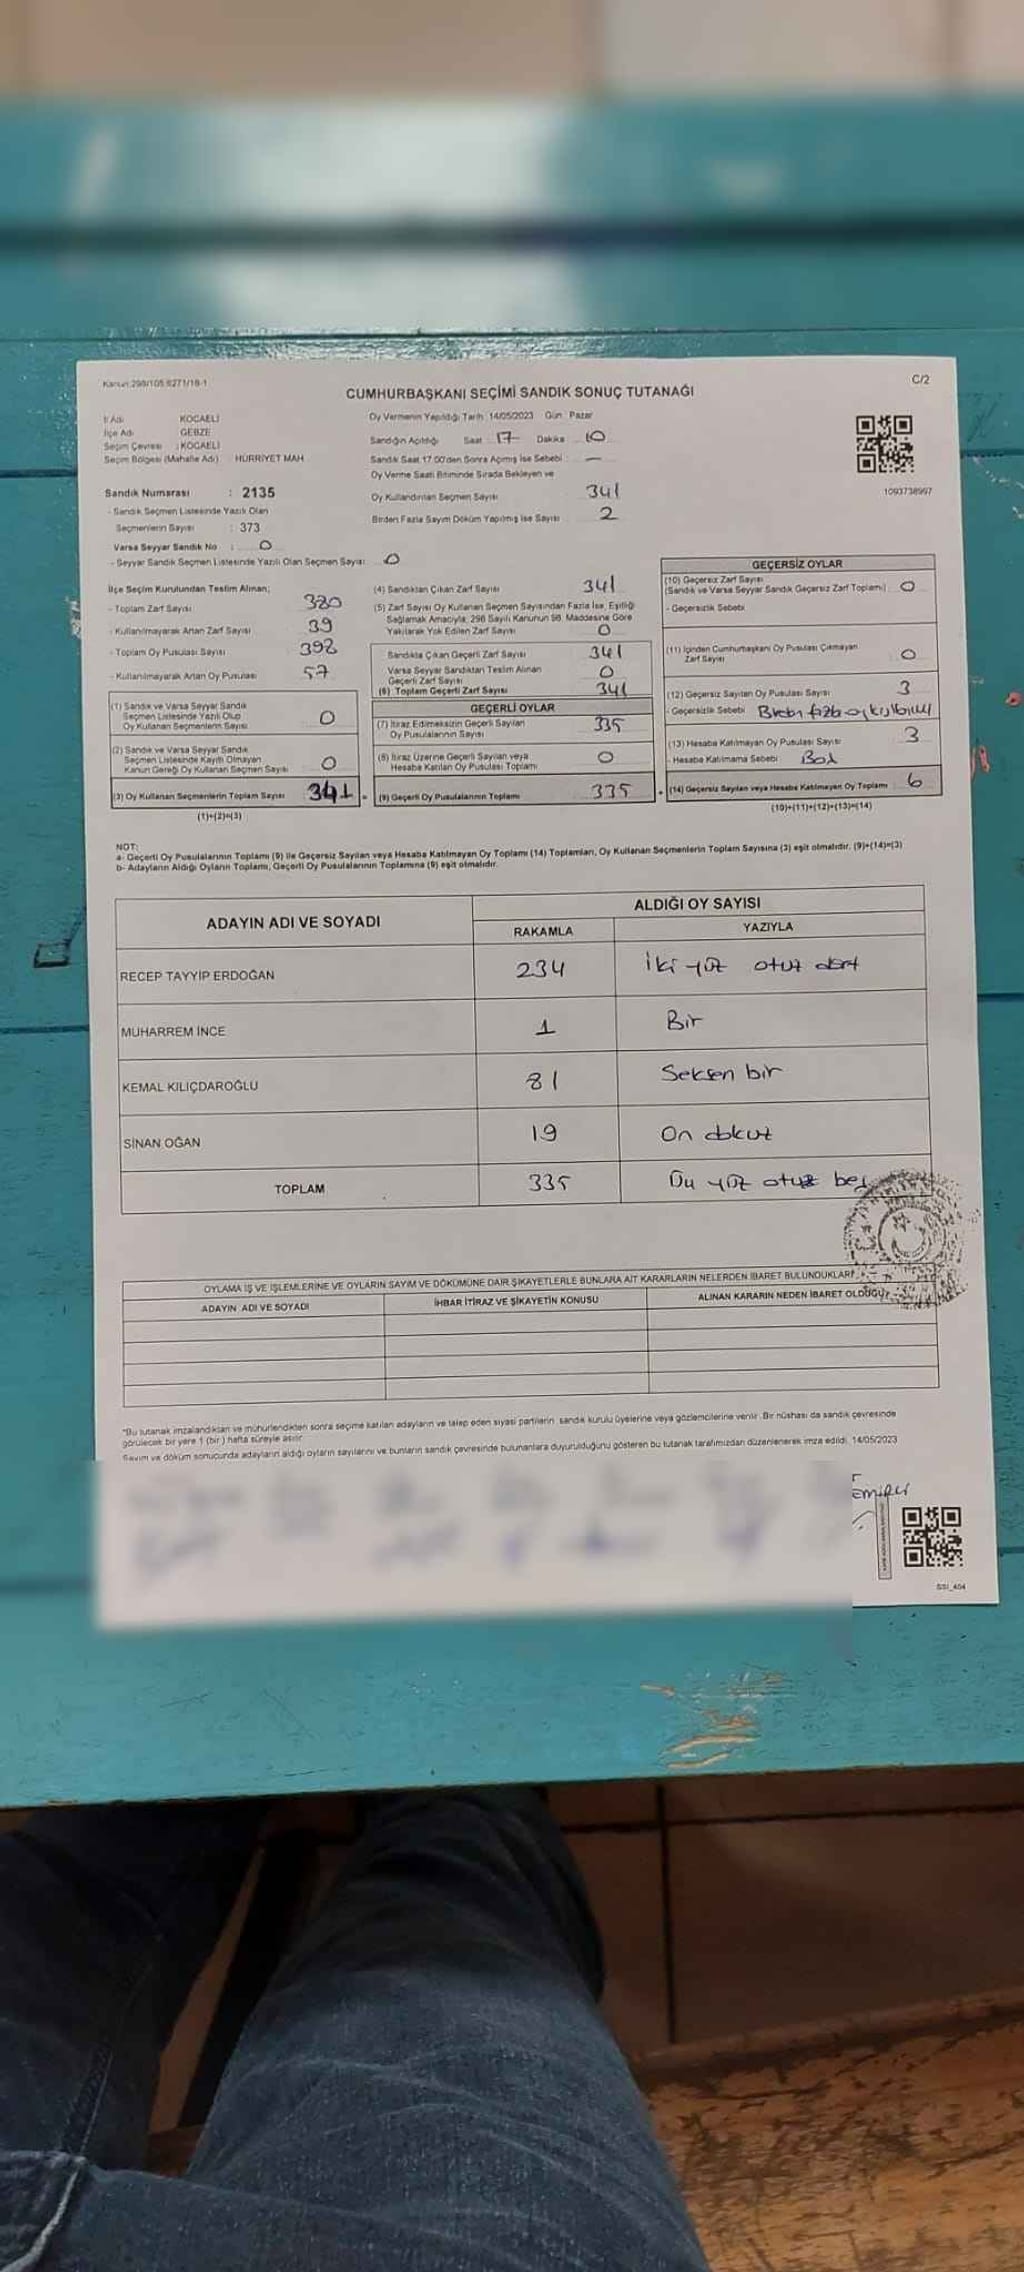 Kanun:298/105 6271/18-1
C/2
CUMHURBAŞKANI SEÇİMİ SANDIK SONUÇ TUTANAĞI
İl Adı KOCAELİ
İlçe Adı GEBZE
Seçim Çevresi : KOCAELİ
Seçim Bölgesi (Mahalle Adı) : HÜRRİYET MAH.
Sandık Numarası : 2135
- Sandık Seçmen Listesinde Yazılı Olan
Seçmenlerin Sayısı : 373
Varsa Seyyar Sandık No : 0
- Seyyar Sandık Seçmen Listesinde Yazılı Olan Seçmen Sayısı 0
Oy Vermenin Yapıldığı Tarih 14/05/2023 Gün Pazar
Sandığın Açıldığı Saat 17 Dakika 10
Sandık Saat 17:00'den Sonra Açılmış İse Sebebi : —
Oy Verme Saati Bitiminde Sırada Bekleyen ve
Oy Kullandırılan Seçmen Sayısı 341
Birden Fazla Sayım Döküm Yapılmış İse Sayısı 2
1093738997
İlçe Seçim Kurulundan Teslim Alınan;
- Toplam Zarf Sayısı 380
- Kullanılmayarak Artan Zarf Sayısı 39
- Toplam Oy Pusulası Sayısı 398
- Kullanılmayarak Artan Oy Pusulası 57
(1) Sandık ve Varsa Seyyar Sandık
Seçmen Listesinde Yazılı Olup
Oy Kullanan Seçmenlerin Sayısı 0
(2) Sandık ve Varsa Seyyar Sandık
Seçmen Listesinde Kayıtlı Olmayan
Kanun Gereği Oy Kullanan Seçmen Sayısı 0
(3) Oy Kullanan Seçmenlerin Toplam Sayısı 341
(1)+(2)=(3)
(4) Sandıktan Çıkan Zarf Sayısı 341
(5) Zarf Sayısı Oy Kullanan Seçmen Sayısından Fazla İse, Eşitliği
Sağlamak Amacıyla, 298 Sayılı Kanunun 98. Maddesine Göre
Yakılarak Yok Edilen Zarf Sayısı 0
- Sandıkta Çıkan Geçerli Zarf Sayısı 341
Varsa Seyyar Sandıktan Teslim Alınan
Geçerli Zarf Sayısı 0
(6) Toplam Geçerli Zarf Sayısı 341
GEÇERLİ OYLAR
(7) İtiraz Edilmeksizin Geçerli Sayılan
Oy Pusulalarının Sayısı 335
(8) İtiraz Üzerine Geçerli Sayılan veya
Hesaba Katılan Oy Pusulası Toplamı 0
(9) Geçerli Oy Pusulalarının Toplamı 335
GEÇERSİZ OYLAR
(10) Geçersiz Zarf Sayısı
(Sandık ve Varsa Seyyar Sandık Geçersiz Zarf Toplamı) 0
- Geçersizlik Sebebi
(11) İçinden Cumhurbaşkanı Oy Pusulası Çıkmayan
Zarf Sayısı 0
(12) Geçersiz Sayılan Oy Pusulası Sayısı 3
- Geçersizlik Sebebi
(13) Hesaba Katılmayan Oy Pusulası Sayısı 3
- Hesaba Katılmama Sebebi Boş
(14) Geçersiz Sayılan veya Hesaba Katılmayan Oy Toplamı 6
(10)+(11)+(12)+(13)=(14)
NOT:
a- Geçerli Oy Pusulalarının Toplamı (9) ile Geçersiz Sayılan veya Hesaba Katılmayan Oy Toplamı (14) Toplamları, Oy Kullanan Seçmenlerin Toplam Sayısına (3) eşit olmalıdır. (9)+(14)=(3)
b- Adayların Aldığı Oyların Toplamı, Geçerli Oy Pusulalarının Toplamına (9) eşit olmalıdır.
ADAYIN ADI VE SOYADI ALDIĞI OY SAYISI
RAKAMLA YAZIYLA
RECEP TAYYİP ERDOĞAN 234 İki yüz otuz dört
MUHARREM İNCE 1 Bir
KEMAL KILIÇDAROĞLU 81 Seksen bir
SİNAN OĞAN 19 On dokuz
TOPLAM 335 Üç yüz otuz beş
OYLAMA İŞ VE İŞLEMLERİNE VE OYLARIN SAYIM VE DÖKÜMÜNE DAİR ŞİKAYETLERLE BUNLARA AİT KARARLARIN NELERDEN İBARET BULUNDUKLARI
ADAYIN ADI VE SOYADI İHBAR İTİRAZ VE ŞİKAYETİN KONUSU ALINAN KARARIN NEDEN İBARET OLDUĞU
*Bu tutanak imzalandıktan ve mühürlendikten sonra seçime katılan adayların ve talep eden siyasi partilerin, sandık kurulu üyelerine veya gözlemcilerine verilir. Bir nüshası da sandık çevresinde
görülecek bir yere 1 (bir) hafta süreyle asılır.
Sayım ve döküm sonucunda adayların aldığı oyların sayılarını ve bunların sandık çevresinde bulunanlara duyurulduğunu gösteren bu tutanak tarafımızdan düzenlenerek imza edildi. 14/05/2023
SSI_404